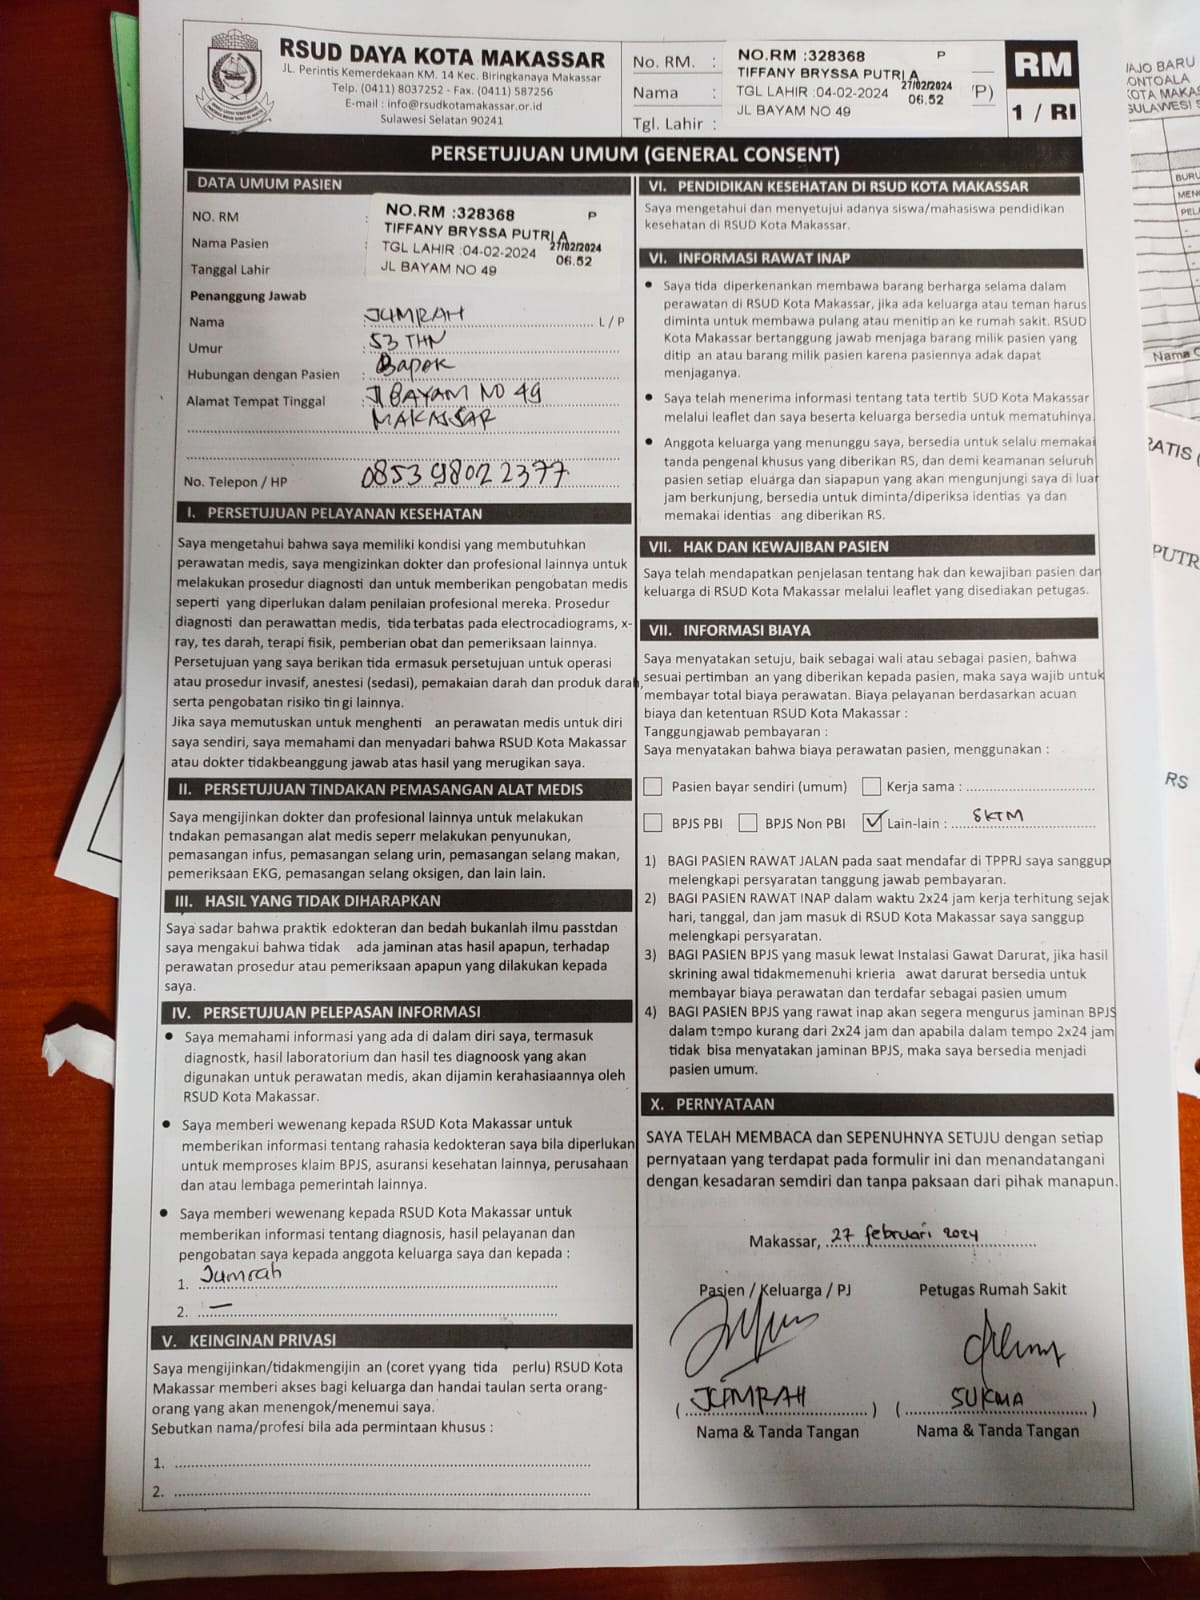 RSUD DAYA KOTA MAKASSAR
JL. Perintis Kemerdekaan KM. 14 Kec. Biringkanaya Makassar
Telp. (0411) 8037252 - Fax. (0411) 587256
E-mail : info@rsudkotamakassar.or.id
Sulawesi Selatan 90241
No. RM. :
Nama :
Tgl. Lahir :
NO.RM :328368 P
TIFFANY BRYSSA PUTRI A
TGL LAHIR :04-02-2024 27/02/2024
06.52
JL BAYAM NO 49
/P)
RM
1 / RI
PERSETUJUAN UMUM (GENERAL CONSENT)
DATA UMUM PASIEN
NO. RM :
Nama Pasien :
Tanggal Lahir
NO.RM :328368 P
TIFFANY BRYSSA PUTRI A
TGL LAHIR :04-02-2024 27/02/2024
06.52
JL BAYAM NO 49
Penanggung Jawab
Nama : JUMRAH L / P
Umur : 53 THN
Hubungan dengan Pasien : Bapak
Alamat Tempat Tinggal : Jl BAYAM NO 49
MAKASSAR
No. Telepon / HP : 0853 9802 2377
I. PERSETUJUAN PELAYANAN KESEHATAN
Saya mengetahui bahwa saya memiliki kondisi yang membutuhkan
perawatan medis, saya mengizinkan dokter dan profesional lainnya untuk
melakukan prosedur diagnosti dan untuk memberikan pengobatan medis
seperti yang diperlukan dalam penilaian profesional mereka. Prosedur
diagnosti dan perawattan medis, tida terbatas pada electrocadiograms, x-
ray, tes darah, terapi fisik, pemberian obat dan pemeriksaan lainnya.
Persetujuan yang saya berikan tida ermasuk persetujuan untuk operasi
atau prosedur invasif, anestesi (sedasi), pemakaian darah dan produk darah,
serta pengobatan risiko tin gi lainnya.
Jika saya memutuskan untuk menghenti an perawatan medis untuk diri
saya sendiri, saya memahami dan menyadari bahwa RSUD Kota Makassar
atau dokter tidakbeanggung jawab atas hasil yang merugikan saya.
II. PERSETUJUAN TINDAKAN PEMASANGAN ALAT MEDIS
Saya mengijinkan dokter dan profesional lainnya untuk melakukan
tndakan pemasangan alat medis seperr melakukan penyunukan,
pemasangan infus, pemasangan selang urin, pemasangan selang makan,
pemeriksaan EKG, pemasangan selang oksigen, dan lain lain.
III. HASIL YANG TIDAK DIHARAPKAN
Saya sadar bahwa praktik edokteran dan bedah bukanlah ilmu passtdan
saya mengakui bahwa tidak ada jaminan atas hasil apapun, terhadap
perawatan prosedur atau pemeriksaan apapun yang dilakukan kepada
saya.
IV. PERSETUJUAN PELEPASAN INFORMASI
● Saya memahami informasi yang ada di dalam diri saya, termasuk
diagnostk, hasil laboratorium dan hasil tes diagnoosk yang akan
digunakan untuk perawatan medis, akan dijamin kerahasiaannya oleh
RSUD Kota Makassar.
● Saya memberi wewenang kepada RSUD Kota Makassar untuk
memberikan informasi tentang rahasia kedokteran saya bila diperlukan
untuk memproses klaim BPJS, asuransi kesehatan lainnya, perusahaan
dan atau lembaga pemerintah lainnya.
● Saya memberi wewenang kepada RSUD Kota Makassar untuk
memberikan informasi tentang diagnosis, hasil pelayanan dan
pengobatan saya kepada anggota keluarga saya dan kepada :
1. Jumrah
2. —
V. KEINGINAN PRIVASI
Saya mengijinkan/tidakmengijin an (coret yyang tida perlu) RSUD Kota
Makassar memberi akses bagi keluarga dan handai taulan serta orang-
orang yang akan menengok/menemui saya.
Sebutkan nama/profesi bila ada permintaan khusus :
1.
2.
VI. PENDIDIKAN KESEHATAN DI RSUD KOTA MAKASSAR
Saya mengetahui dan menyetujui adanya siswa/mahasiswa pendidikan
kesehatan di RSUD Kota Makassar.
VI. INFORMASI RAWAT INAP
● Saya tida diperkenankan membawa barang berharga selama dalam
perawatan di RSUD Kota Makassar, jika ada keluarga atau teman harus
diminta untuk membawa pulang atau menitip an ke rumah sakit. RSUD
Kota Makassar bertanggung jawab menjaga barang milik pasien yang
ditip an atau barang milik pasien karena pasiennya adak dapat
menjaganya.
● Saya telah menerima informasi tentang tata tertib SUD Kota Makassar
melalui leaflet dan saya beserta keluarga bersedia untuk mematuhinya.
● Anggota keluarga yang menunggu saya, bersedia untuk selalu memakai
tanda pengenal khusus yang diberikan RS, dan demi keamanan seluruh
pasien setiap eluárga dan siapapun yang akan mengunjungi saya di luar
jam berkunjung, bersedia untuk diminta/diperiksa identias ya dan
memakai identias ang diberikan RS.
VII. HAK DAN KEWAJIBAN PASIEN
Saya telah mendapatkan penjelasan tentang hak dan kewajiban pasien dan
keluarga di RSUD Kota Makassar melalui leaflet yang disediakan petugas.
VII. INFORMASI BIAYA
Saya menyatakan setuju, baik sebagai wali atau sebagai pasien, bahwa
sesuai pertimban an yang diberikan kepada pasien, maka saya wajib untuk
membayar total biaya perawatan. Biaya pelayanan berdasarkan acuan
biaya dan ketentuan RSUD Kota Makassar :
Tanggungjawab pembayaran :
Saya menyatakan bahwa biaya perawatan pasien, menggunakan :
Pasien bayar sendiri (umum) Kerja sama :
BPJS PBI BPJS Non PBI ✓ Lain-lain : SKTM
1) BAGI PASIEN RAWAT JALAN pada saat mendafar di TPPRJ saya sanggup
melengkapi persyaratan tanggung jawab pembayaran.
2) BAGI PASIEN RAWAT INAP dalam waktu 2x24 jam kerja terhitung sejak
hari, tanggal, dan jam masuk di RSUD Kota Makassar saya sanggup
melengkapi persyaratan.
3) BAGI PASIEN BPJS yang masuk lewat Instalasi Gawat Darurat, jika hasil
skrining awal tidakmemenuhi krieria awat darurat bersedia untuk
membayar biaya perawatan dan terdafar sebagai pasien umum
4) BAGI PASIEN BPJS yang rawat inap akan segera mengurus jaminan BPJS
dalam tempo kurang dari 2x24 jam dan apabila dalam tempo 2x24 jam
tidak bisa menyatakan jaminan BPJS, maka saya bersedia menjadi
pasien umum.
X. PERNYATAAN
SAYA TELAH MEMBACA dan SEPENUHNYA SETUJU dengan setiap
pernyataan yang terdapat pada formulir ini dan menandatangani
dengan kesadaran semdiri dan tanpa paksaan dari pihak manapun.
Makassar, 27 februari 2024
Pasien / Keluarga / PJ Petugas Rumah Sakit
( JUMRAH ) ( SUKMA )
Nama & Tanda Tangan Nama & Tanda Tangan
AJO BARU
ONTOALA
KOTA MAKAS
SULAWESI S
BURU
PUTR
RS